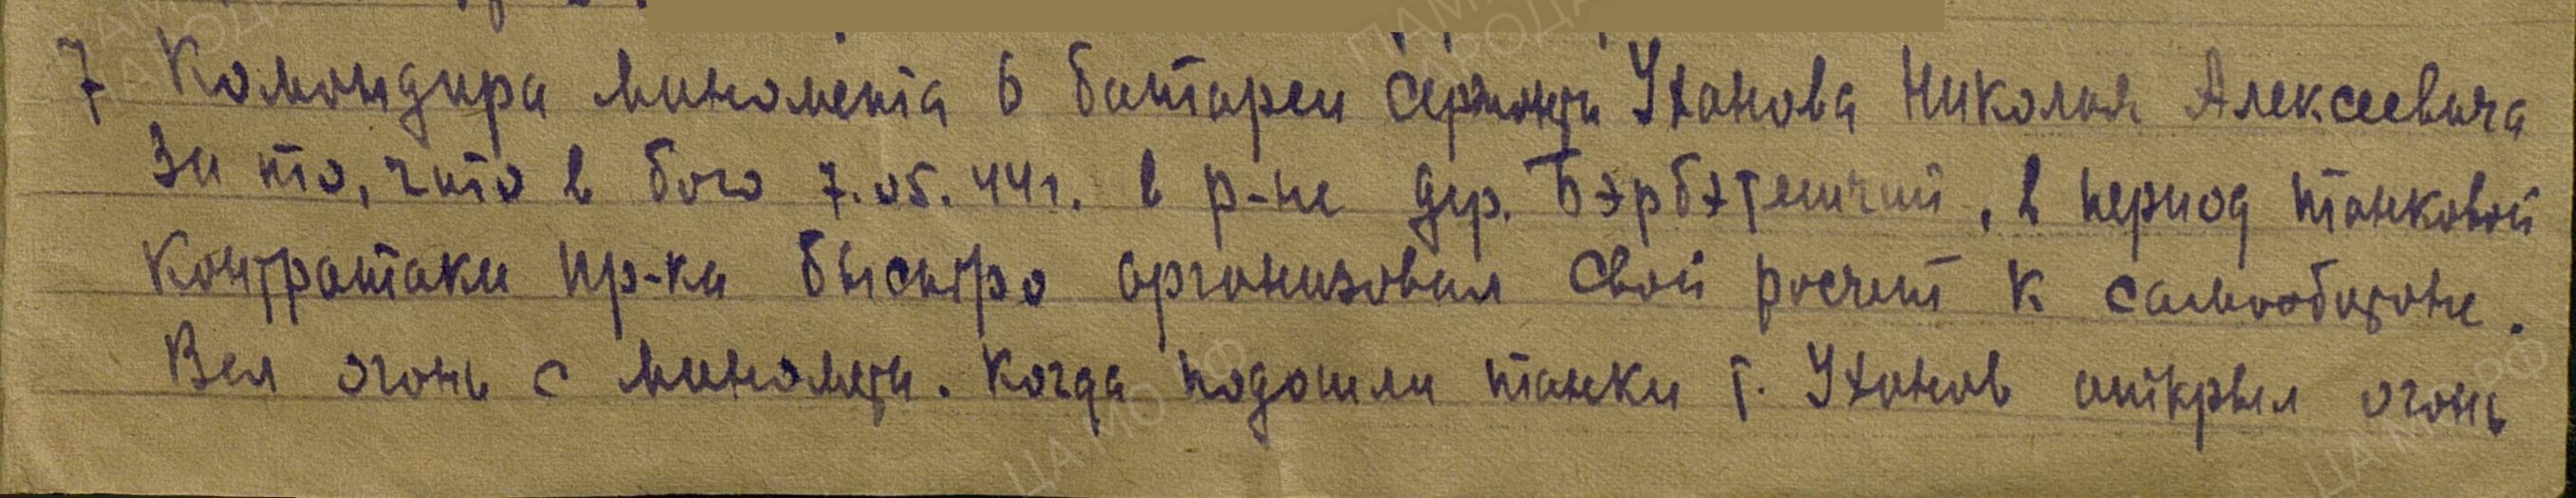 7 Командира миномета 6 батареи сержанта Уханова Николая Алексеевича
За то, что в бою 7.05.44г. в р-не дер. Бэрбэтешчий, в период танковой
контратаки пр-ка быстро организовал свой расчет к самообороне.
Вел огонь с миномета. Когда подошли танки т. Уханов открыл огонь